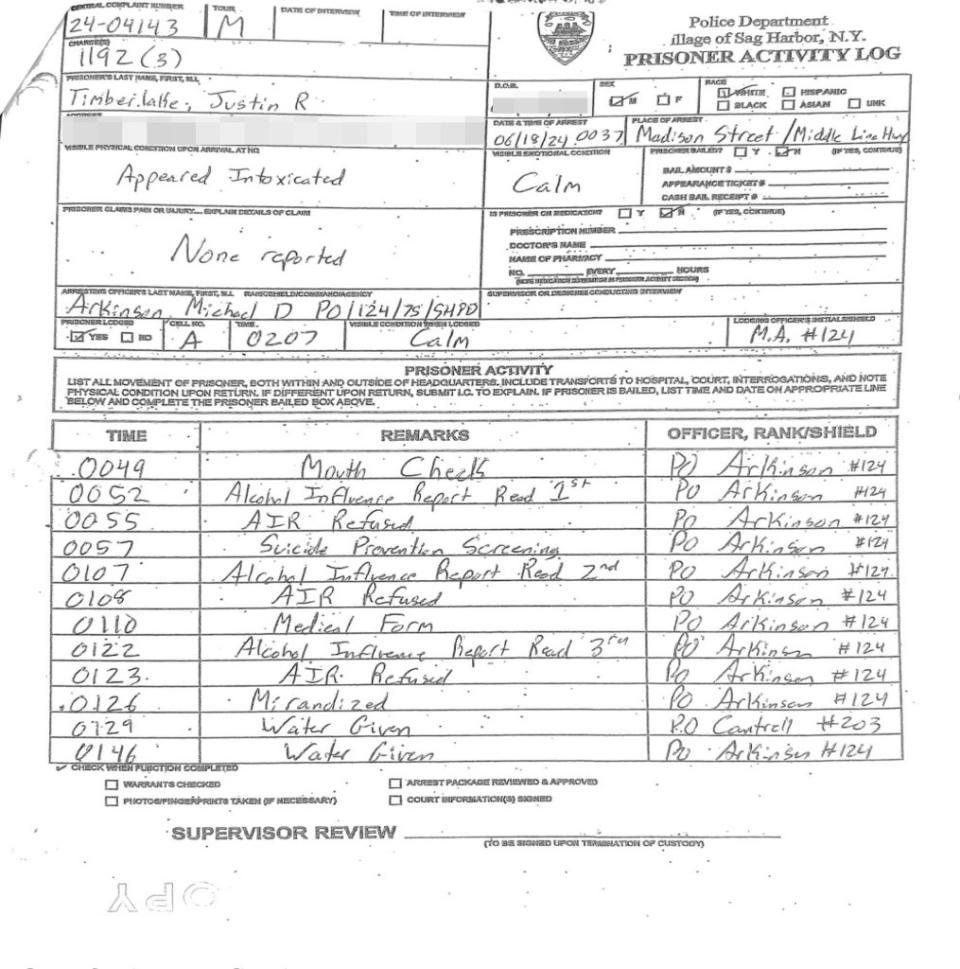 CENTRAL COMPLAINT NUMBER TOUR DATE OF INTERVIEW TIME OF INTERVIEW
24-04143 M
Police Department
illage of Sag Harbor, N.Y.
PRISONER ACTIVITY LOG
CHARGE(S)
1192 (3)
PRISONER'S LAST NAME, FIRST, M.I. D.O.B. SEX RACE
Timberlake, Justin R M F WHITE HISPANIC
BLACK ASIAN UNK
ADDRESS DATE & TIME OF ARREST PLACE OF ARREST
06/18/24 0037 Madison Street / Middle Line Hwy
VISIBLE PHYSICAL CONDITION UPON ARRIVAL AT HQ VISIBLE EMOTIONAL CONDITION PRISONER BAILED? Y N (IF YES, CONTINUE)
Appeared Intoxicated Calm
BAIL AMOUNT $
APPEARANCE TICKET #
CASH BAIL RECEIPT #
PRISONER CLAIMS PAIN OR INJURY... EXPLAIN DETAILS OF CLAIM IS PRISONER ON MEDICATION? Y N (IF YES, CONTINUE)
None reported
PRESCRIPTION NUMBER
DOCTOR'S NAME
NAME OF PHARMACY
NO. EVERY HOURS
(NOTE MEDICATION IN PRISONER ACTIVITY SECTION)
ARRESTING OFFICER'S LAST NAME, FIRST, M.I. RANK/SHIELD/COMMAND/AGENCY SUPERVISOR OR DESIGNEE CONDUCTING INTERVIEW
Arkinson, Michael D PO/124/75/SHPD
PRISONER LODGED CELL NO. TIME VISIBLE CONDITION WHEN LODGED LODGING OFFICER'S INITIAL/SHIELD
YES NO A 0207 Calm M.A. #124
PRISONER ACTIVITY
LIST ALL MOVEMENT OF PRISONER, BOTH WITHIN AND OUTSIDE OF HEADQUARTERS. INCLUDE TRANSPORTS TO HOSPITAL, COURT, INTERROGATIONS, AND NOTE
PHYSICAL CONDITION UPON RETURN. IF DIFFERENT UPON RETURN, SUBMIT I.C. TO EXPLAIN. IF PRISONER IS BAILED, LIST TIME AND DATE ON APPROPRIATE LINE
BELOW AND COMPLETE THE PRISONER BAILED BOX ABOVE.
TIME REMARKS OFFICER, RANK/SHIELD
0049 Mouth Check PO Arkinson #124
0052 Alcohol Influence Report Read 1st PO Arkinson #124
0055 AIR Refused PO Arkinson #124
0057 Suicide Prevention Screening PO Arkinson #124
0107 Alcohol Influence Report Read 2nd PO Arkinson #124
0108 AIR Refused PO Arkinson #124
0110 Medical Form PO Arkinson #124
0122 Alcohol Influence Report Read 3rd PO Arkinson #124
0123 AIR Refused PO Arkinson #124
0126 Mirandized PO Arkinson #124
0129 Water Given P.O Cantrell #203
0146 Water Given PO Arkinson #124
✓ CHECK WHEN FUNCTION COMPLETED
WARRANTS CHECKED ARREST PACKAGE REVIEWED & APPROVED
PHOTOS/FINGERPRINTS TAKEN (IF NECESSARY) COURT INFORMATION(S) SIGNED
SUPERVISOR REVIEW
(TO BE SIGNED UPON TERMINATION OF CUSTODY)